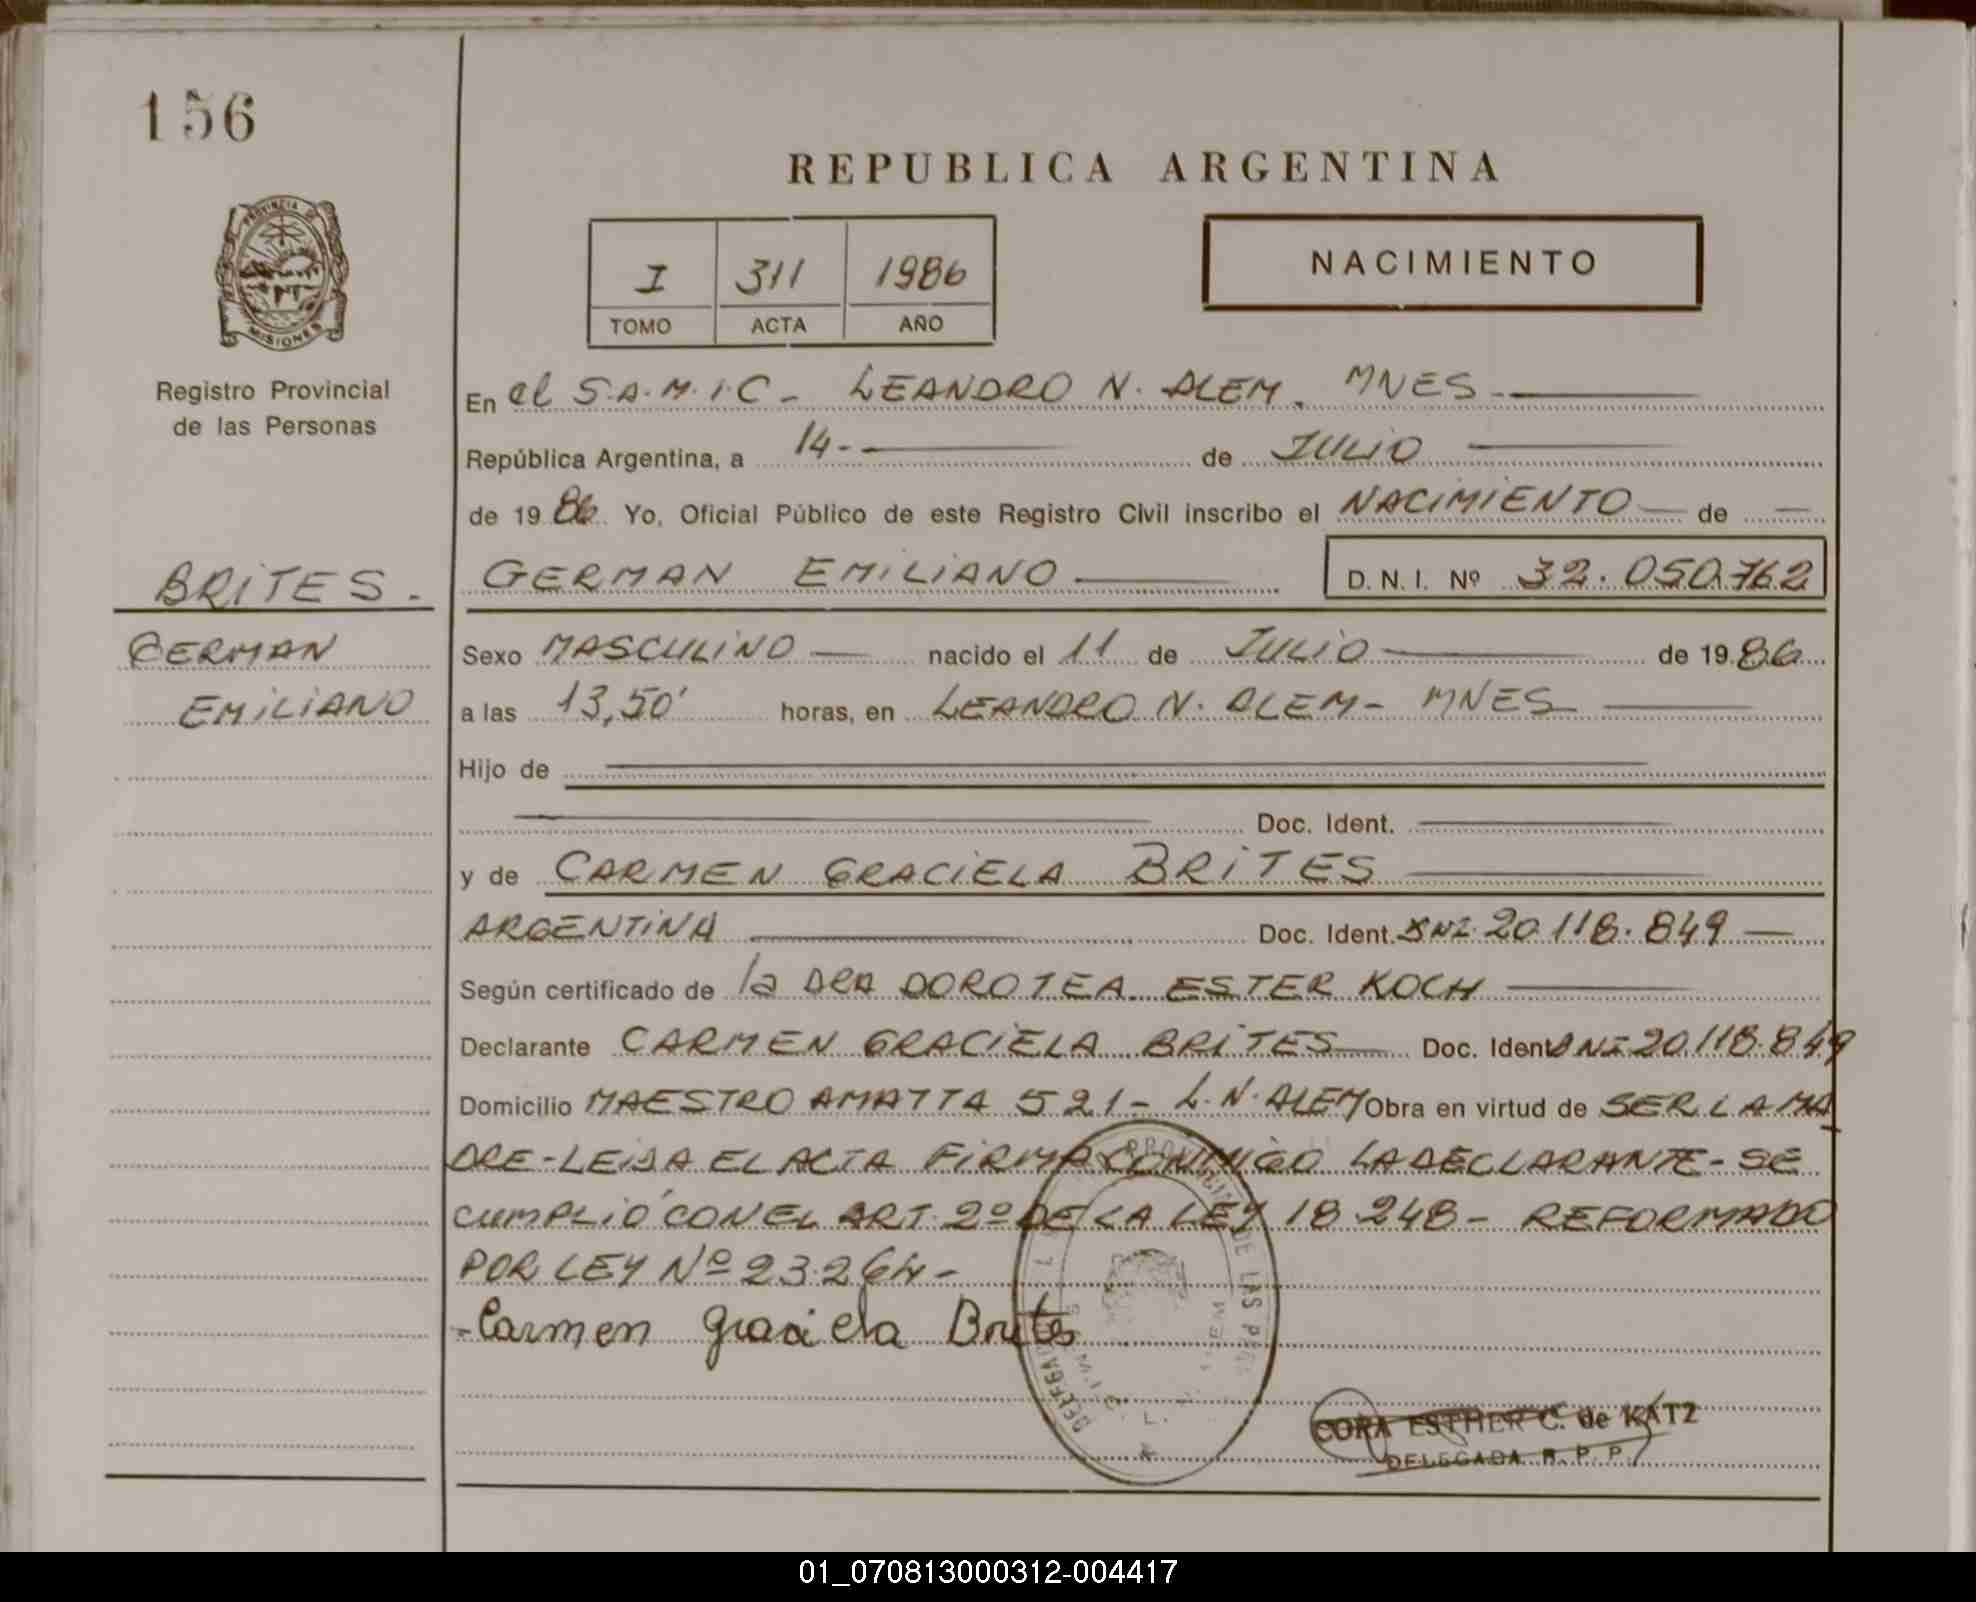 156
REPUBLICA ARGENTINA
PROVINCIA DE
MISIONES
Registro Provincial
de las Personas
I 311 1986
TOMO ACTA AÑO
NACIMIENTO
En el S.A.M.I.C - LEANDRO N. ALEM. MNES -
República Argentina, a 14- de JULIO
de 19 86 Yo, Oficial Público de este Registro Civil inscribo el NACIMIENTO de
BRITES.
GERMAN EMILIANO D. N. I. Nº 32.050.762
GERMAN
EMILIANO
Sexo MASCULINO nacido el 11 de JULIO de 19 86
a las 13,50' horas, en LEANDRO N. ALEM - MNES
Hijo de
Doc. Ident.
y de CARMEN GRACIELA BRITES
ARGENTINA Doc. Ident. DNI. 20.118.849
Según certificado de la DRA DOROTEA ESTER KOCH
Declarante CARMEN GRACIELA BRITES Doc. Ident DNI 20.118.849
Domicilio MAESTRO AMATTA 521 - L.N. ALEM Obra en virtud de SER LA MA
DRE - LEIDA EL ACTA FIRMA CONMIGO LA DECLARANTE - SE
CUMPLIÓ CON EL ART. 2º DE LA LEY 18.248 - REFORMADO
POR LEY Nº 23.264 -
Carmen Graciela Brites
CORA ESTHER C. de KATZ
DELEGADA R. P. P.
01_070813000312-004417